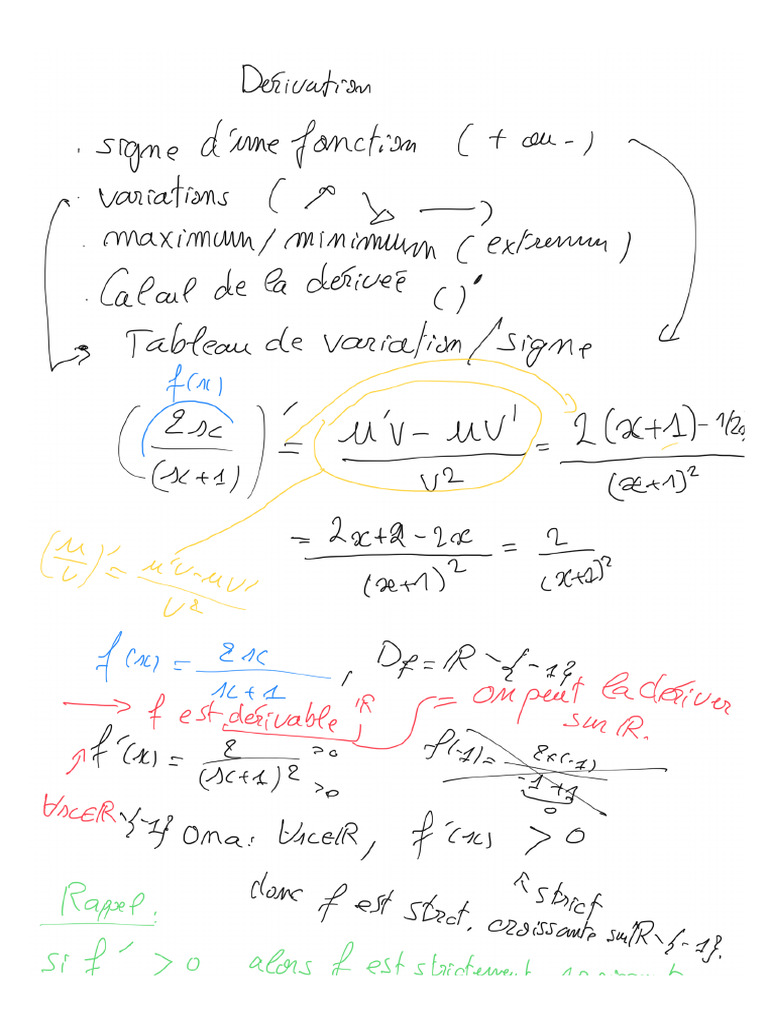 Dérivation
. signe d'une fonction ( + ou - )
. variations ( ↗ ↘ → )
. maximum / minimum ( extremum )
. Calcul de la dérivée ( )'
→ Tableau de variation / signe
f(x)
(2x/(x+1))' = (u'v - uv')/v² = (2(x+1) - 1(2x
)/(x+1)²
= (2x+2-2x)/(x+1)² = 2/(x+1)²
(u/v)' = (u'v - uv')/v²
f(x) = 2x/(x+1) , Df = ℝ \ {-1}
→ f est dérivable ℝ = on peut la dériver
sur ℝ.
f'(x) = 2/(x+1)² >0 >0
f(-1) = 2×(-1)/(-1+1)
0
∀x∈ℝ\{-1} On a : ∀x∈ℝ, f'(x) > 0
↑ strict
donc f est strict. croissante sur ℝ\{-1}.
Rappel :
si f' > 0 alors f est strictement